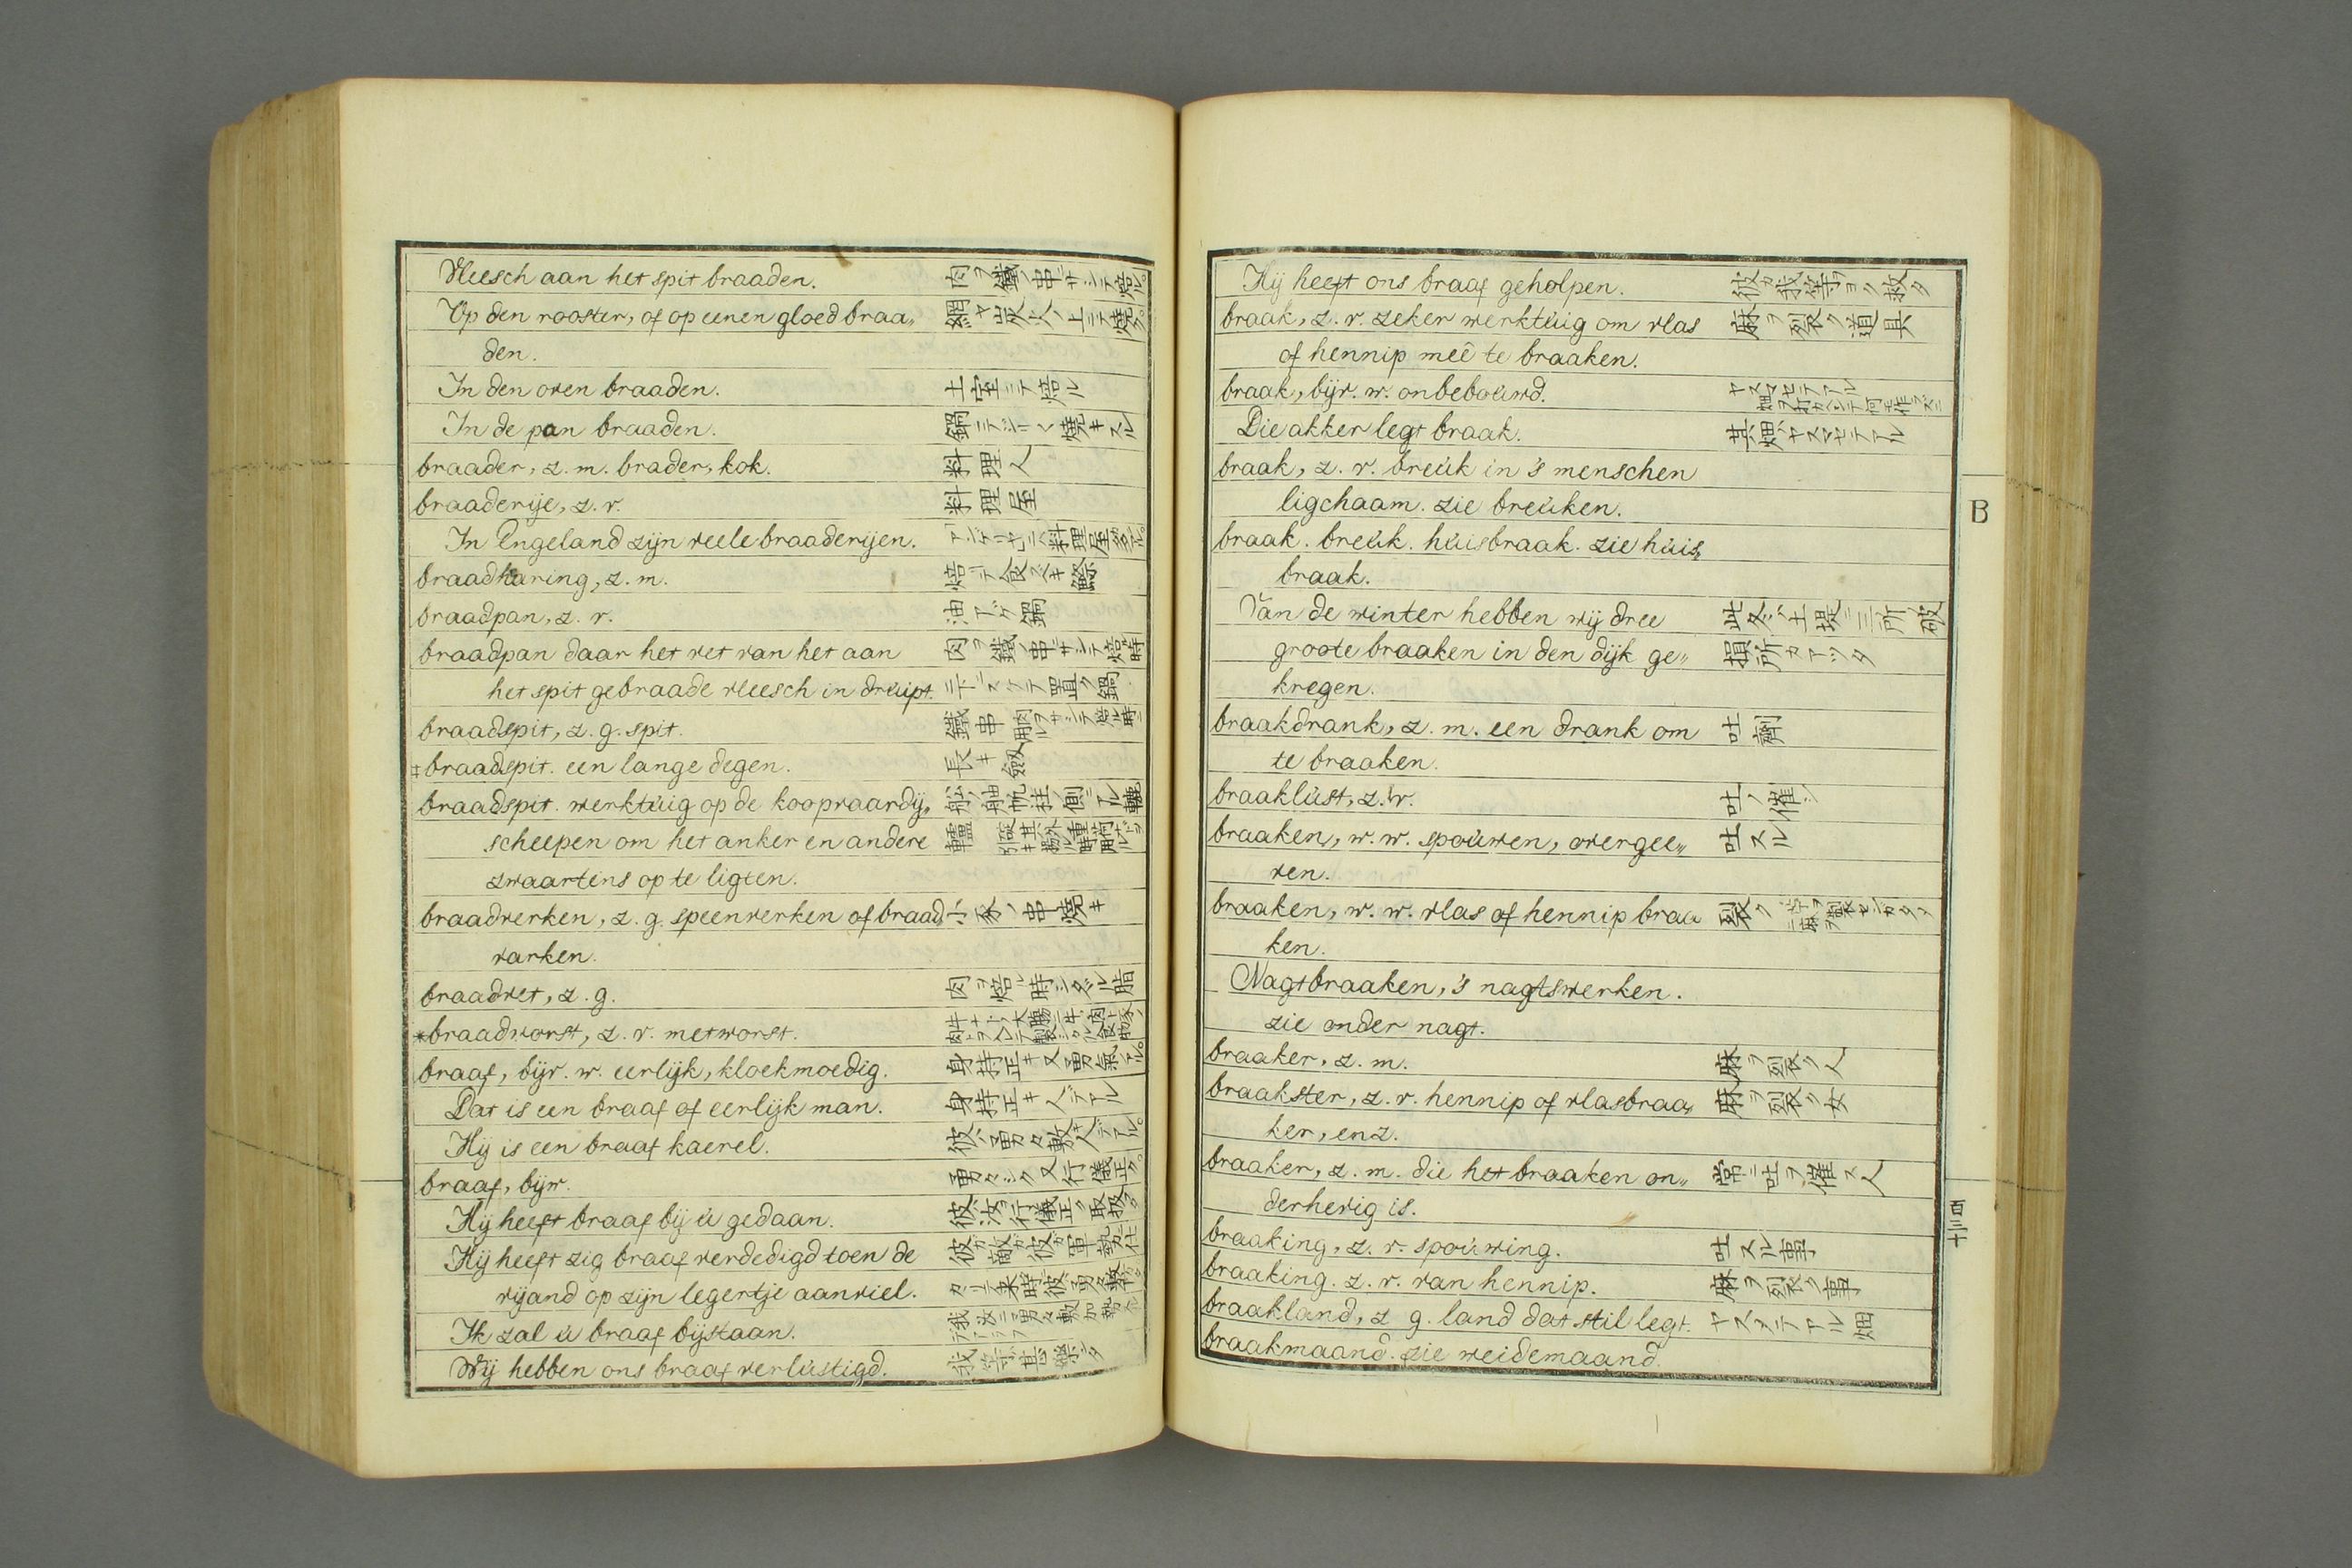 Vleesch aan het spit braaden. 肉ヲ鐵ノ串ニサシテ焙ル。
Op den rooster, of op eenen gloed braa„ 網ヤ炭火ノ上ニテ燒ク。
den.
In den oven braaden. 土室ニテ焙ル
In de pan braaden. 鍋ニテ 燒キスル
braader, z. m. brader, kok. 料理人
braaderije, z. v. 料理屋
In Engeland zijn veele braaderijen. 料理屋多アル。
braadharing, z. m. 焙リテ食スベキ鯡
braadpan, z. v. 油アゲ鍋
braadpan daar het vet van het aan 肉ヲ鐵ノ串ニサシテ焙ル時
het spit gebraade vleesch in druipt. ニ下ニスケテ置ク鍋
braadspit, z. g. spit. 鐵串 肉ヲサシテ焙ル時ニ用ル
‡braadspit. een lange degen. 長キ劔
braadspit. werktúig op de koopvaardij„ 舩ノ舳帆柱ノ側ニアル轆
scheepen om het anker en andere 轤
zwaartens op te ligten.
braadverken, z. g. speenverken of braad„ 小豕ノ串燒キ
varken.
braadvet, z. g. 肉ヲ焙ル時シタヽル脂
*braadworst, z. v. metworst.
braaf, bijv. w. eerlijk, kloekmoedig. 身持正キ又勇氣アル。
Dat is een braaf of eerlijk man. 身持正キ人デアル
Hij is een braaf kaerel. 彼ハ勇々敷人デアル。
braaf, bijw. 勇々シク又行儀正ク。
Hij heeft braaf bij ú gedaan. 彼ガ汝ニ行儀正ク取扱タ。
Hij heeft zig braaf verdedigd toen de 彼ガ敵ガ彼ガ軍勢ニ仕
vijand op zijn legertje aanviel. カ 来時彼 勇々敷
Ik zal ú braaf bijstaan. 我汝ニ勇々敷加勢
Wij hebben ons braaf verlústigd. 我等ガ甚樂ンタ
Hij heeft ons braaf geholpen. 彼ガ我等ヲヨク救タ
braak, z. v. zeker werktúig om vlas 麻ヲ裂ク道具
of hennip meê te braaken.
braak, bijv. w. onbeboúwd. ヤスマセテアル
Die akker legt braak. 其畑ハヤスマセテアル
braak, z. v. breúk in 's menschen
ligchaam. zie breúken.
braak. breúk. húisbraak. zie húis„
braak.
Van de winter hebben wij dree 此冬ハ土堤ニ三所破
groote braaken in den dijk ge„ 損所カアツタ
kregen.
braakdrank, z. m. een drank om 吐劑
te braaken.
braaklúst, z. v. 吐ノ催シ
braaken, w. w. spoúwen, overgee„ 吐スル
ven.
braaken, w. w. vlas of hennip braa 裂ク
ken.
Nagtbraaken, 's nagtswerken.
zie onder nagt.
braaker, z. m. 麻ヲ裂ク人
braakster, z. v. hennip of vlasbraa„ 麻ヲ裂ク女
ker, enz.
braaker, z. m. die het braaken on„ 常ニ吐ヲ催ス人
derhevig is.
braaking, z. v. spoúwing. 吐スル事
braaking. z. v. van hennip. 麻ヲ裂ク事
braakland, z g. land dat stil legt. ヤスメテアル畑
braakmaand. zie weidemaand.
B
四百三十